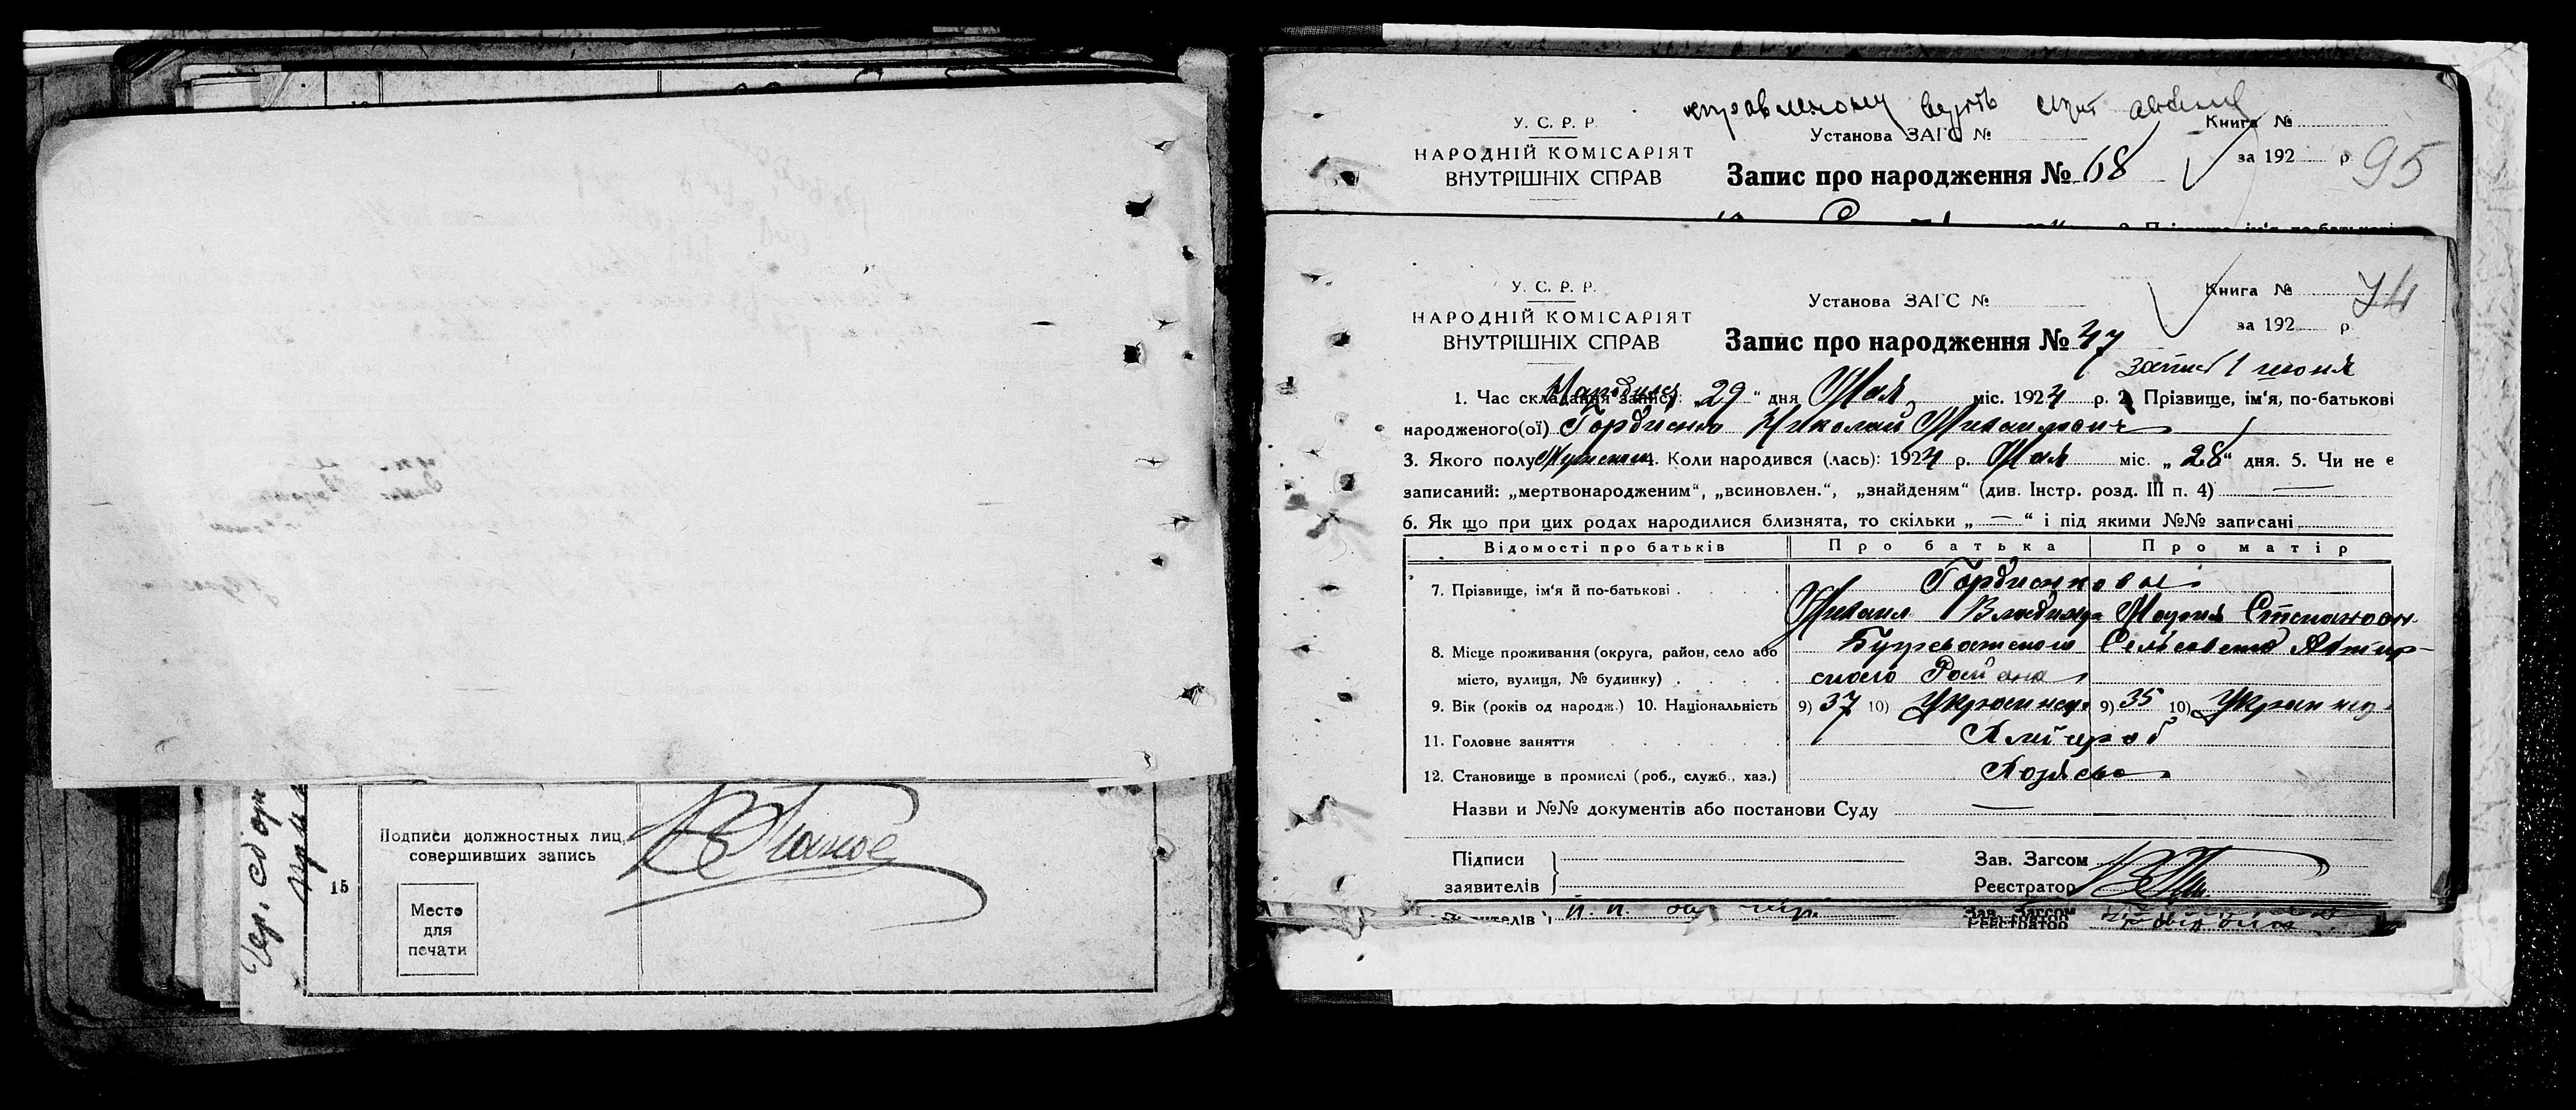 Подписи должностных лиц,
совершивших запись
15
Место
для
печати
У. С. Р. Р.
НАРОДНІЙ КОМІСАРІЯТ
ВНУТРІШНІХ СПРАВ
Установа ЗАГС №
Запис про народження № 68
Книга №
за 192 р.
95
У. С. Р. Р.
НАРОДНІЙ КОМІСАРІЯТ
ВНУТРІШНІХ СПРАВ
Установа ЗАГС №
Запис про народження № 47
Книга №
за 192 р.
74
1 июня
1. Час складання запису: „29“ дня Мая міс. 1924 р. 2. Прізвище, ім‘я, по-батькові
народженого(ої) Гордиенко Николай Михаилович
3. Якого полу Мужеского 4. Коли народився (лась): 1924 р. Мая міс. „28“ дня. 5. Чи не є
записаний: „мертвонародженим“, „всиновлен.“, „знайденям“ (див. Інстр. розд. III п. 4) —
6. Як що при цих родах народилися близнята, то скільки „—“ і під якими №№ записані
Відомості про батьків Про батька Про матір
7. Прізвище, ім‘я й по-батькові Гордиенковы
Михаил Владимир Мария Степановн
8. Місце проживання (округа, район, село або Сельсовета Ахтыр-
місто, вулиця, № будинку) ского Района
9. Вік (років од народж.) 10. Національність 9) 37 10) Украинец 9) 35 10) Украинец
11. Головне заняття Хлібороб
12. Становище в промислі (роб., служб., хаз.) Хозяева
Назви и №№ документів або постанови Суду —
Підписи
заявителів
Зав. Загсом
Реєстратор
Зав. Загсом
Реєстратор